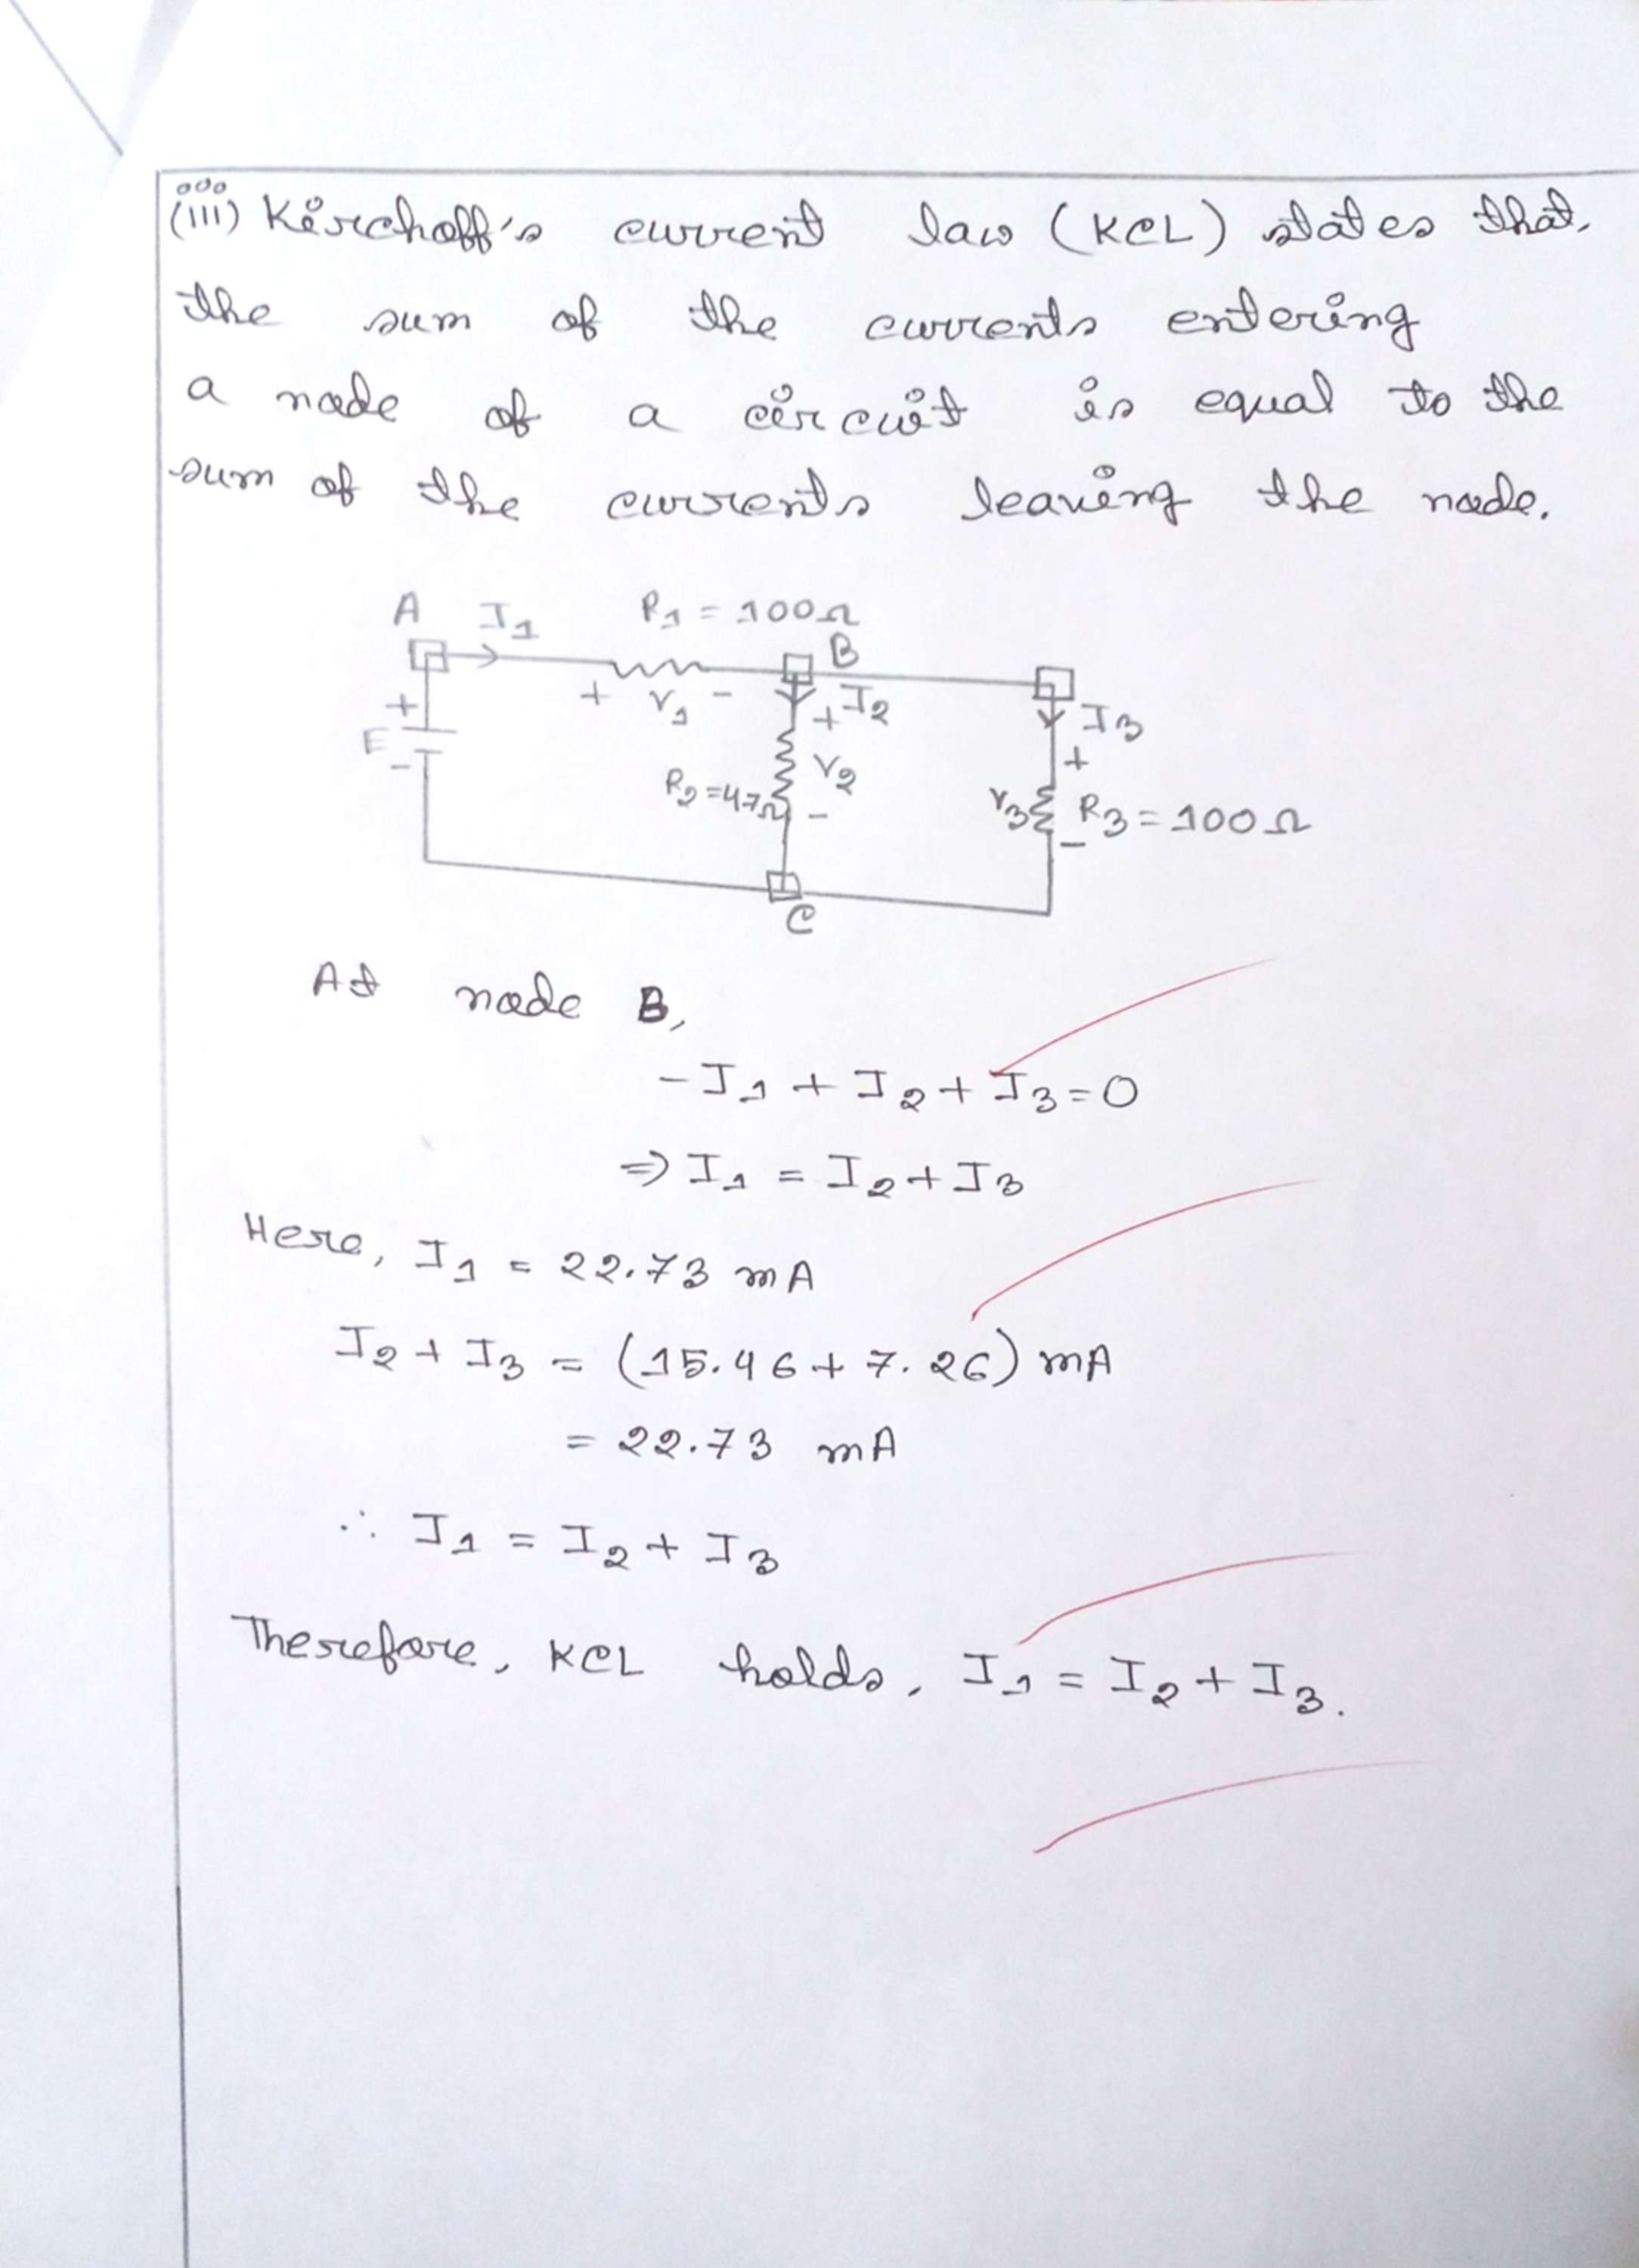 (iii) Kirchoff's current law (KCL) states that,
the sum of the currents entering
a node of a circuit is equal to the
sum of the currents leaving the node.
A I1 R1 = 100Ω
B
+ V1 - I2
+ I3
E + +
- R2 = 47Ω V2 V3 R3 = 100Ω
- -
C
At node B,
-I1 + I2 + I3 = 0
⇒ I1 = I2 + I3
Here, I1 = 22.73 mA
I2 + I3 = (15.46 + 7.26) mA
= 22.73 mA
∴ I1 = I2 + I3
Therefore, KCL holds, I1 = I2 + I3.